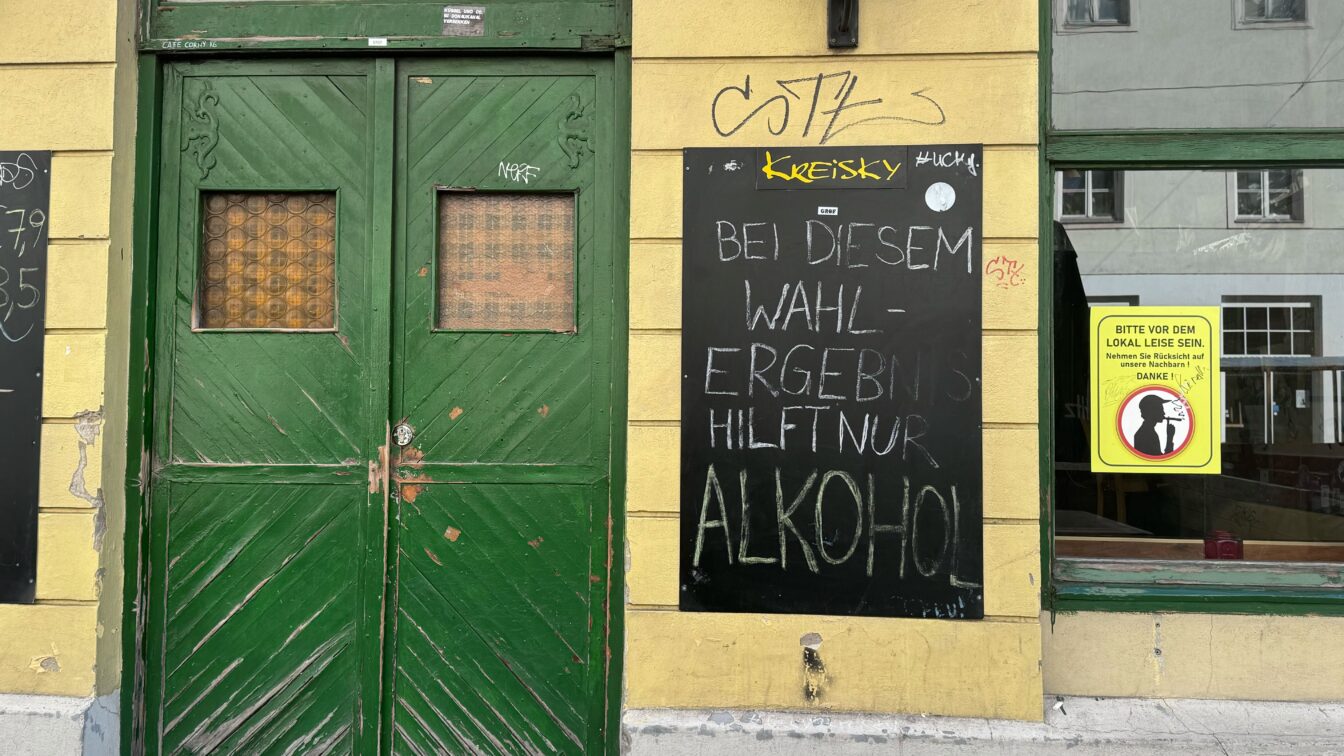 CAFE CORNY KG
NERF
7,9
3,5
STZ
KREISKY
#UCKY.
GROF
BEI DIESEM
WAHL-
ERGEBNIS
HILFT NUR
ALKOHOL
BITTE VOR DEM
LOKAL LEISE SEIN.
Nehmen Sie Rücksicht auf
unsere Nachbarn !
DANKE !